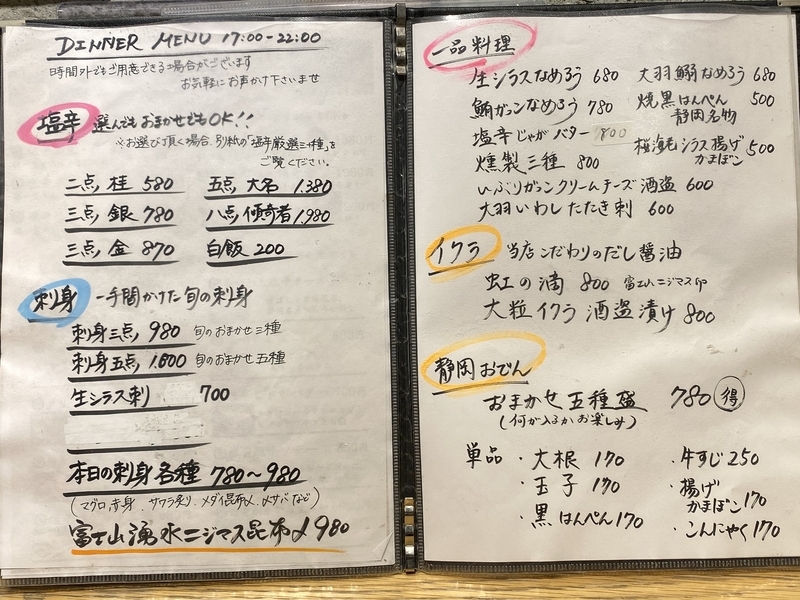 DINNER MENU 17:00-22:00
時間外でもご用意できる場合がございます
お気軽にお声かけ下さいませ
塩辛 選んでもおまかせでもOK!!
※お選び頂く場合、別紙の「塩辛厳選三十種」を
ご覧ください。
二点 桂 580 五点 大名 1.380
三点 銀 780 八点 傾奇者 1.980
三点 金 870 白飯 200
刺身 一手間かけた旬の刺身
刺身三点 980 旬のおまかせ三種
刺身五点 1.600 旬のおまかせ五種
生シラス刺 700
本日の刺身各種 780〜980
(マグロ赤身、サワラ炙り、メダイ昆布〆、〆サバなど)
富士山湧水ニジマス昆布〆 980
一品料理
生シラスなめろう 680
鯵がっこなめろう 780
塩辛じゃがバター 800
燻製三種 800
いぶりがっこクリームチーズ酒盗 600
大羽いわしたたき刺 600
大羽鰯なめろう 680
焼黒はんぺん 500
静岡名物
桜海老シラス揚げ 500
かまぼこ
イクラ 当店こだわりのだし醤油
虹の滴 800 富士山ニジマス
大粒イクラ 酒盗漬け 800
静岡おでん
おまかせ五種盛 780 得
(何が入るかお楽しみ)
単品 ・大根 170
・玉子 170
・黒はんぺん 170
・牛すじ 250
・揚げ
かまぼこ 170
・こんにゃく 170